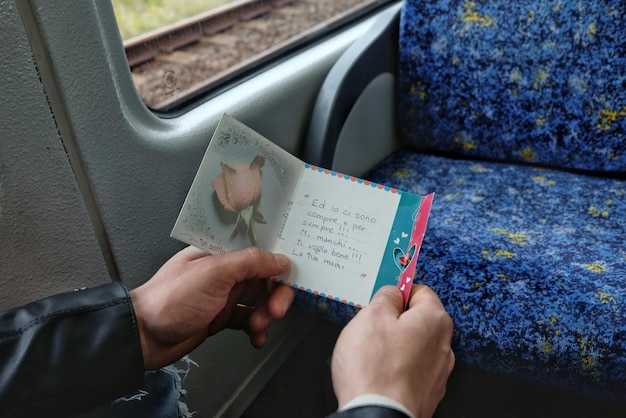 "Ed io ci sono
sempre e per
sempre !!!
Mi manchi...
ti voglio bene!!!
La tua